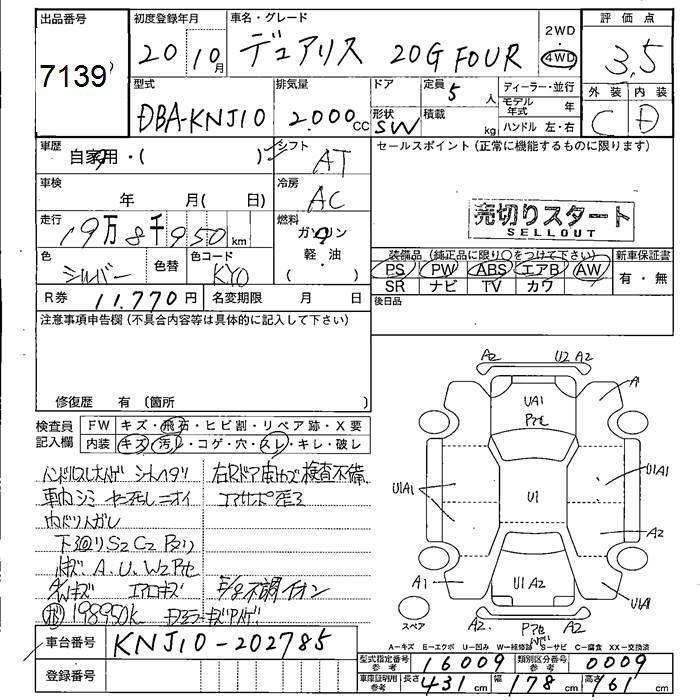 出品番号
7139
初度登録年月
20 10月
車名・グレード
デュアリス 20G FOUR
2WD
4WD
評価点
3.5
外装 内装
C D
型式
DBA-KNJ10
排気量
2.000cc
ドア
形状 SW
定員 5人
積載 kg
ディーラー・並行
モデル年式 年
ハンドル 左・右
車歴
自家用・( )
シフト
AT
セールスポイント (正常に機能するものに限ります)
車検
年 月( 日)
冷房
AC
売切りスタート
SELLOUT
走行
19万8千950km
燃料
ガソリン
軽・油
( )
色
シルバー
色替
色コード
KY0
装備品 (純正品に限り○をつけて下さい)
PS PW ABS エアB AW
SR ナビ TV カワ
新車保証書
有・無
R券 11.770円
名変期限 月 日
後日品
注意事項申告欄(不具合内容等は具体的に記入して下さい)
修復歴 有 (箇所 )
検査員記入欄
FW キズ・飛石・ヒビ割・リペア跡・X要
内装 キズ・汚れ・コゲ・穴・スレ・キレ・破レ
検査不備
車内シミ
下廻りS2 C2
A.U.W2
エアロキズ
不調
198950k
A2 U2 A2
A1
UA1
U1A1
U1
U1A1
A2
A1
U1A2
U1A1
A2
A2
スペア
車台番号
KNJ10-202785
登録番号
A-キズ E-エクボ U-凹み W-補修跡 S-サビ C-腐食 XX-交換済
型式指定番号 参考 16009
類別区分番号 参考 0009
車庫証明用 参考 長さ 431 幅 178 高さ 161